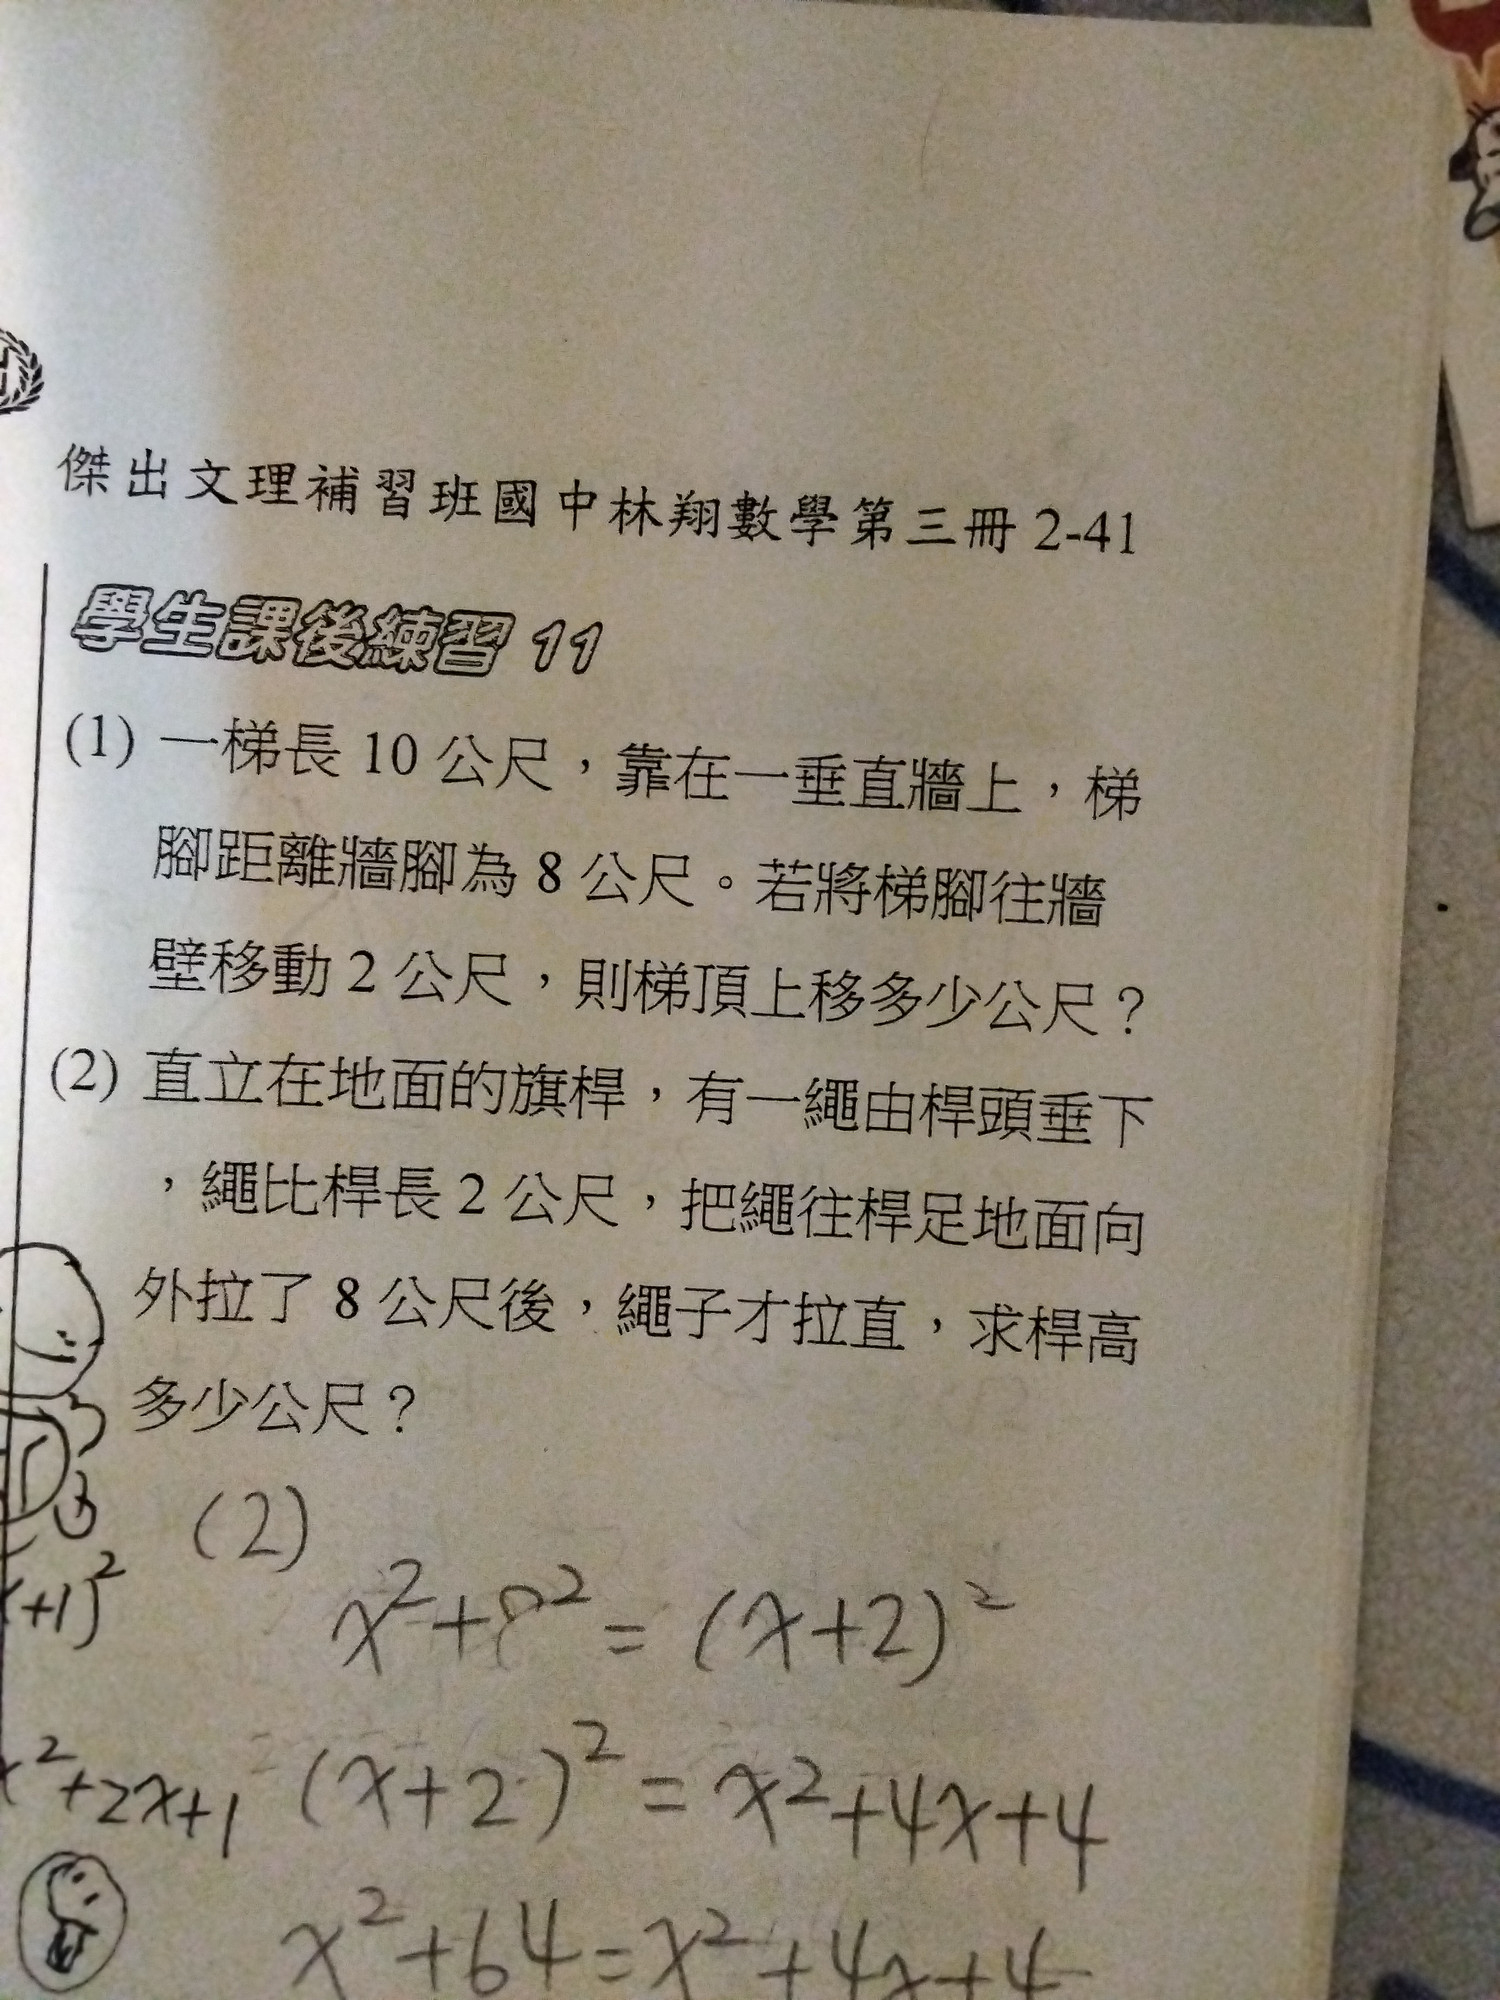 傑出文理補習班國中林翔數學第三冊 2-41
學生課後練習 11
(1) 一梯長 10 公尺，靠在一垂直牆上，梯
腳距離牆腳為 8 公尺。若將梯腳往牆
壁移動 2 公尺，則梯頂上移多少公尺？
(2) 直立在地面的旗桿，有一繩由桿頭垂下
，繩比桿長 2 公尺，把繩往桿足地面向
外拉了 8 公尺後，繩子才拉直，求桿高
多少公尺？
(2)
x²+8²=(x+2)²
+1)²
(x+2)²=x²+4x+4
x²+2x+1
x²+64=x²+4x+4